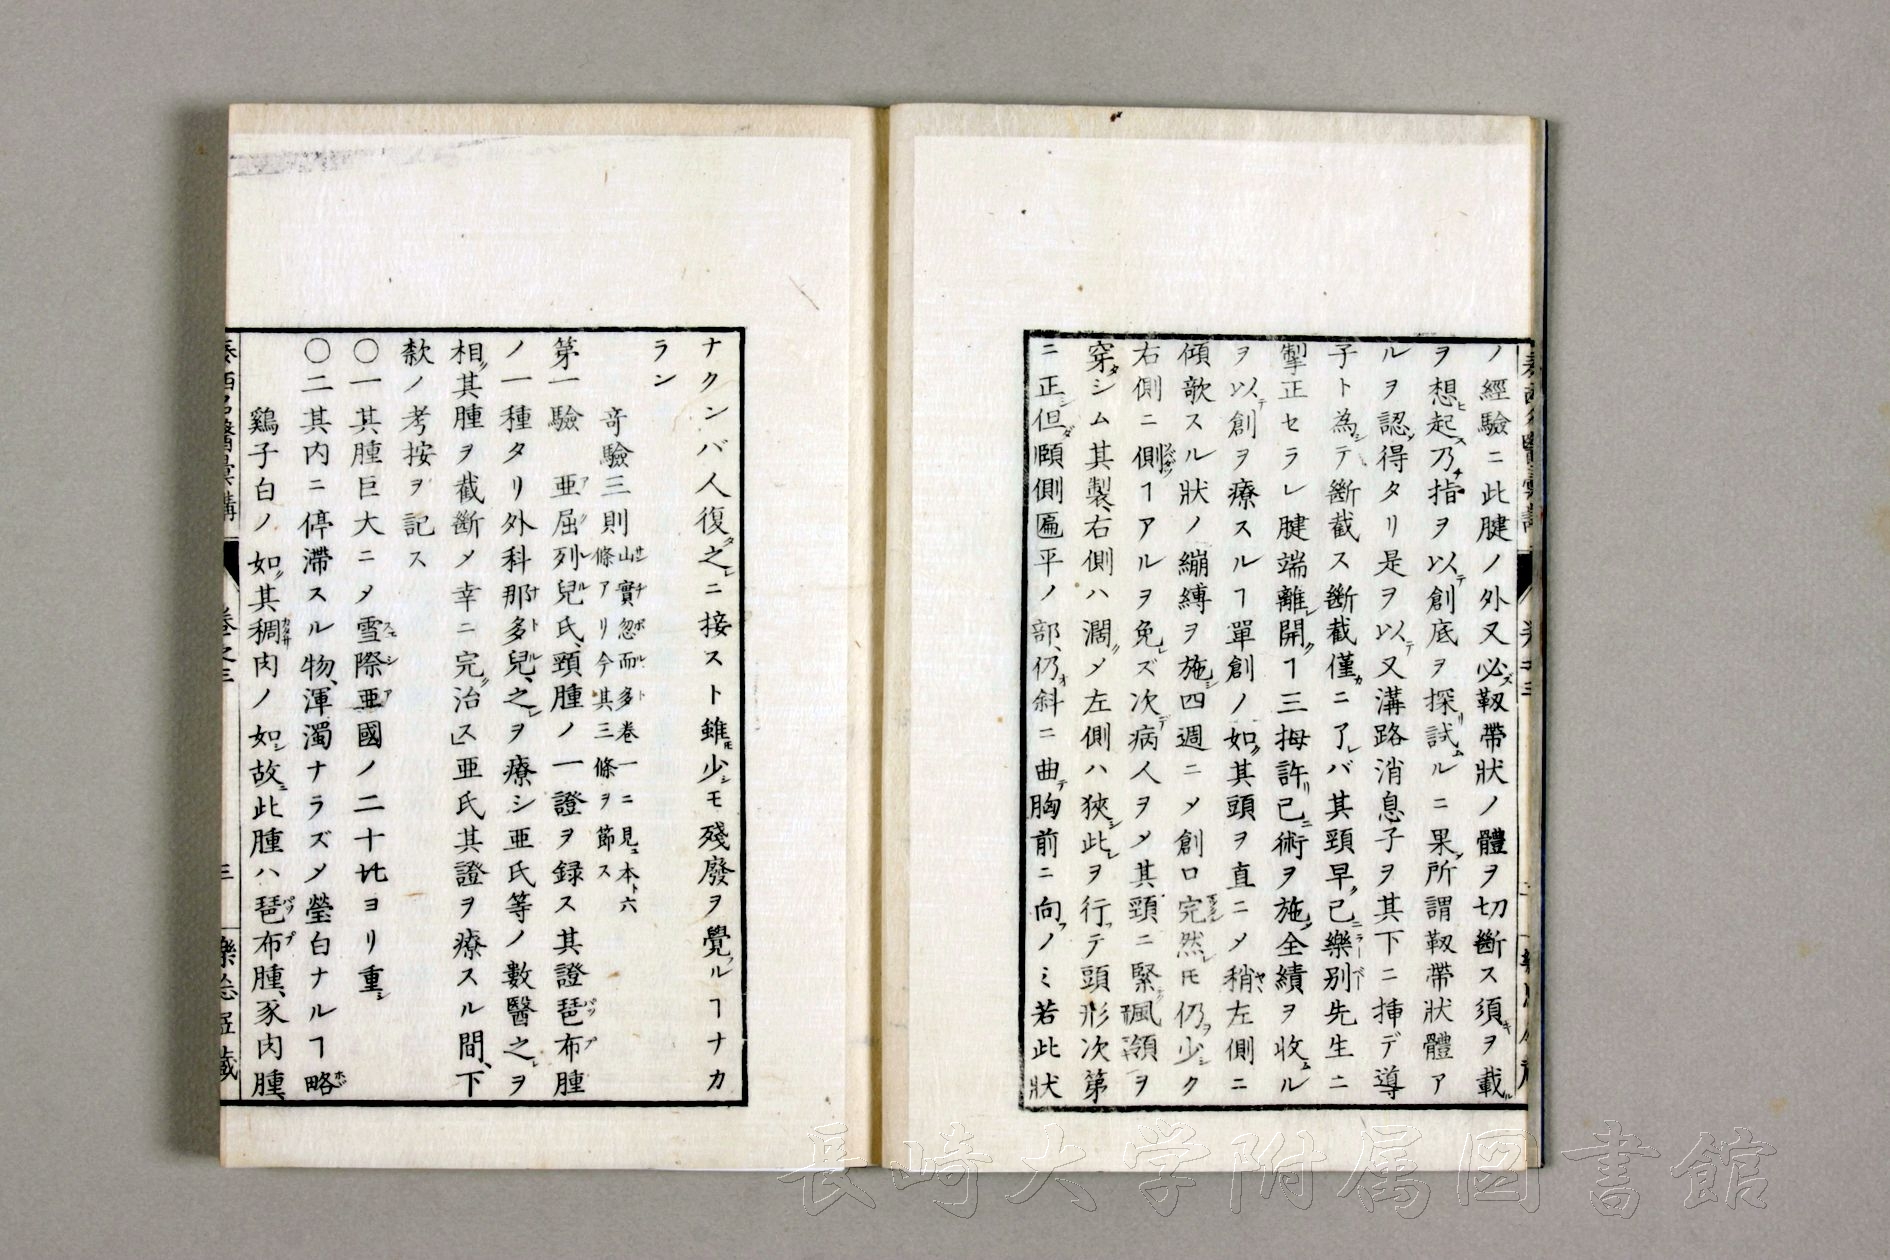 ノ經驗ニ此腱ノ外又必ズ靱帶狀ノ體ヲ切斷ス須キヲ載ル
ヲ想起ス乃チ指ヲ以テ創底ヲ探リ試ムルニ果ノ所謂靱帶狀體ア
ルヲ認メ得タリ是ヲ以テ又溝路消息子ヲ其下ニ挿デ導
子ト為シテ斷截ス斷截僅カニ了レバ其頸早ク已ニ樂別先生ニ
掣正セラレ腱端離レ開クヿ三拇許リ已ニ術ヲ施ノ全績ヲ收ムル
ヲ以テ創ヲ療スルヿ單創ノ如ク其頭ヲ直ニメ稍ヤ左側ニ
傾歌スル狀ノ繃縛ヲ施シ四週ニメ創口完然レㇳモ仍ヲ少シク
右側ニ側ソバダツヿアルヲ免レズ次デ病人ヲメ其頸ニ緊ク颯領ヲ
穿タシム其製右側ハ濶クメ左側ハ狹シ此レヲ行ッテ頭形次第
ニ正シ但ダ頤側匾平ノ部、仍オ斜ニ曲テ胸前ニ向フノミ若此狀
ナクンバ人復タ之レニ接スト雖ㇳモ少シモ殘廢ヲ覺フルヿナカ
ラン
奇驗三則 山實忽而多卷一ニ見ユ本ト六
條アリ今其三條ヲ節ス
第一驗 亜屈列兒氏、頸腫ノ一證ヲ録ス其證琶布腫
ノ一種タリ外科那多兒、之レヲ療シ亜氏等ノ數醫之レヲ
相ク其腫ヲ截斷メ幸ニ完ク治ス」亜氏其證ヲ療スル間、下
欵ノ考按ヲ記ス
〇一其腫巨大ニメ雪際亜國ノ二十九ヨリ重シ
〇二其内ニ停滯スル物、渾濁ナラズメ瑩白ナルヿ略ホボ
鷄子白ノ如ク其稠肉ノ如シ故ニ此腫ハ琶布腫、豕肉腫、
卷之三
三
樂㤀堂藏
長崎大学附属図書館